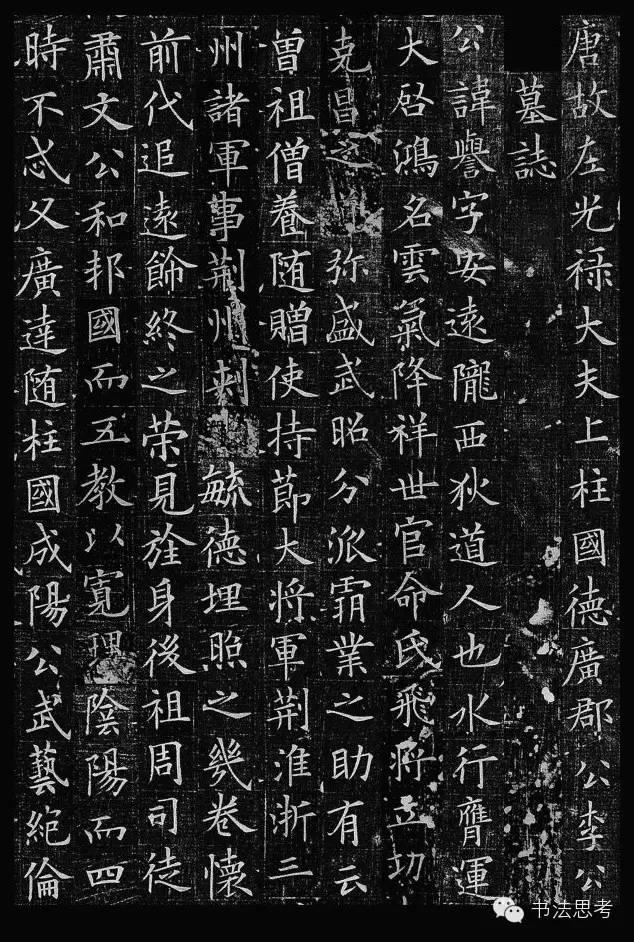 唐故左光禄大夫上柱國德廣郡公李公
墓誌
公諱譽字安遠隴西狄道人也水行膺運
大啓鴻名雲氣降祥世官命氏飛将立功
克昌之弥盛武昭分派霸業之助有云
曽祖僧養随贈使持莭大将軍荆淮浙三
州諸軍事荆州刾毓德埋照之幾卷懐
前代追遠飾終之荣見旌身後祖周司徒
肅文公和邦國而五教以寛理陰陽而四
時不忒父廣達随柱國成陽公武藝絕倫
书法思考